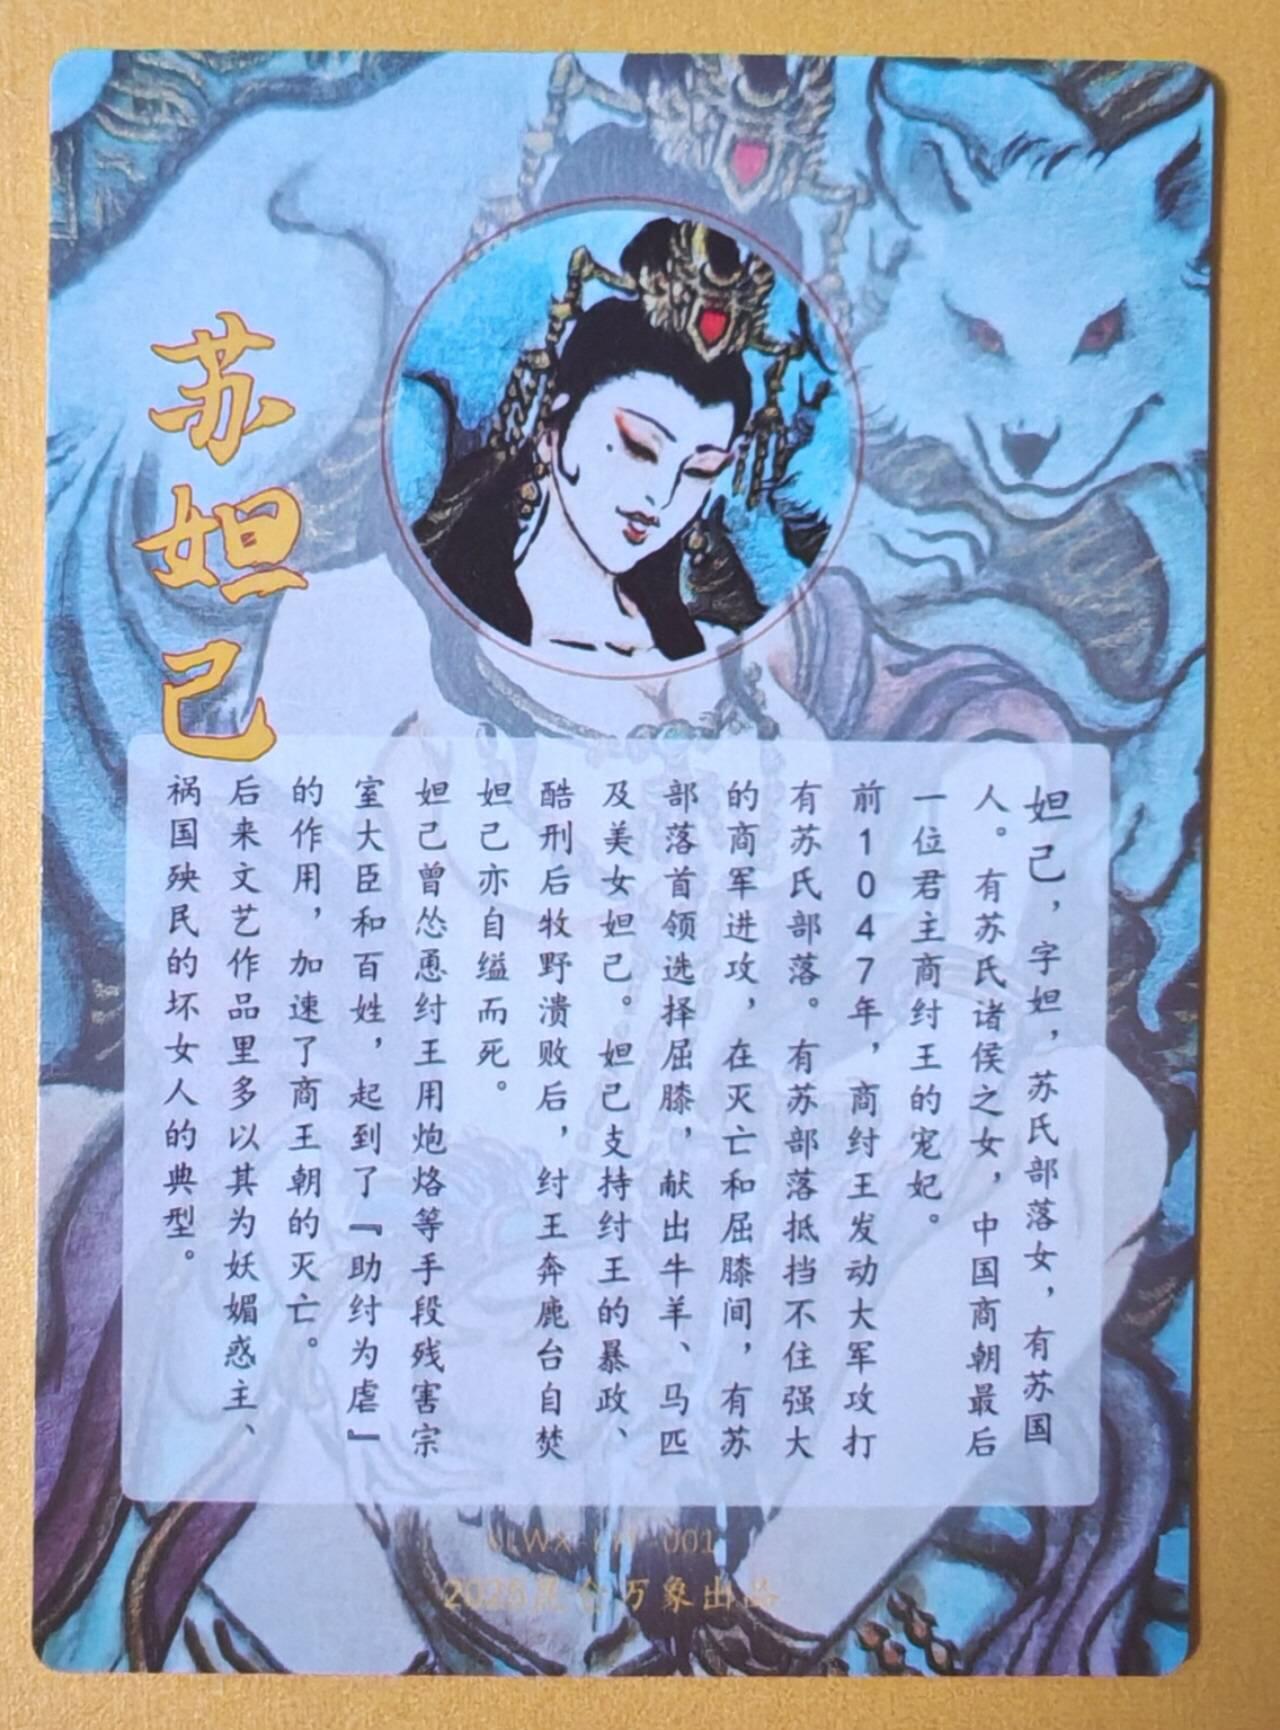 苏妲己
妲己，字妲，苏氏部落女，有苏国
人。有苏氏诸侯之女，中国商朝最后
一位君主商纣王的宠妃。
前1047年，商纣王发动大军攻打
有苏氏部落。有苏部落抵挡不住强大
的商军进攻，在灭亡和屈膝间，有苏
部落首领选择屈膝，献出牛羊、马匹
及美女妲己。妲己支持纣王的暴政、
酷刑后牧野溃败后，纣王奔鹿台自焚
妲己亦自缢而死。
妲己曾怂恿纣王用炮烙等手段残害宗
室大臣和百姓，起到了『助纣为虐』
的作用，加速了商王朝的灭亡。
后来文艺作品里多以其为妖媚惑主、
祸国殃民的坏女人的典型。
001
2025 万象出品